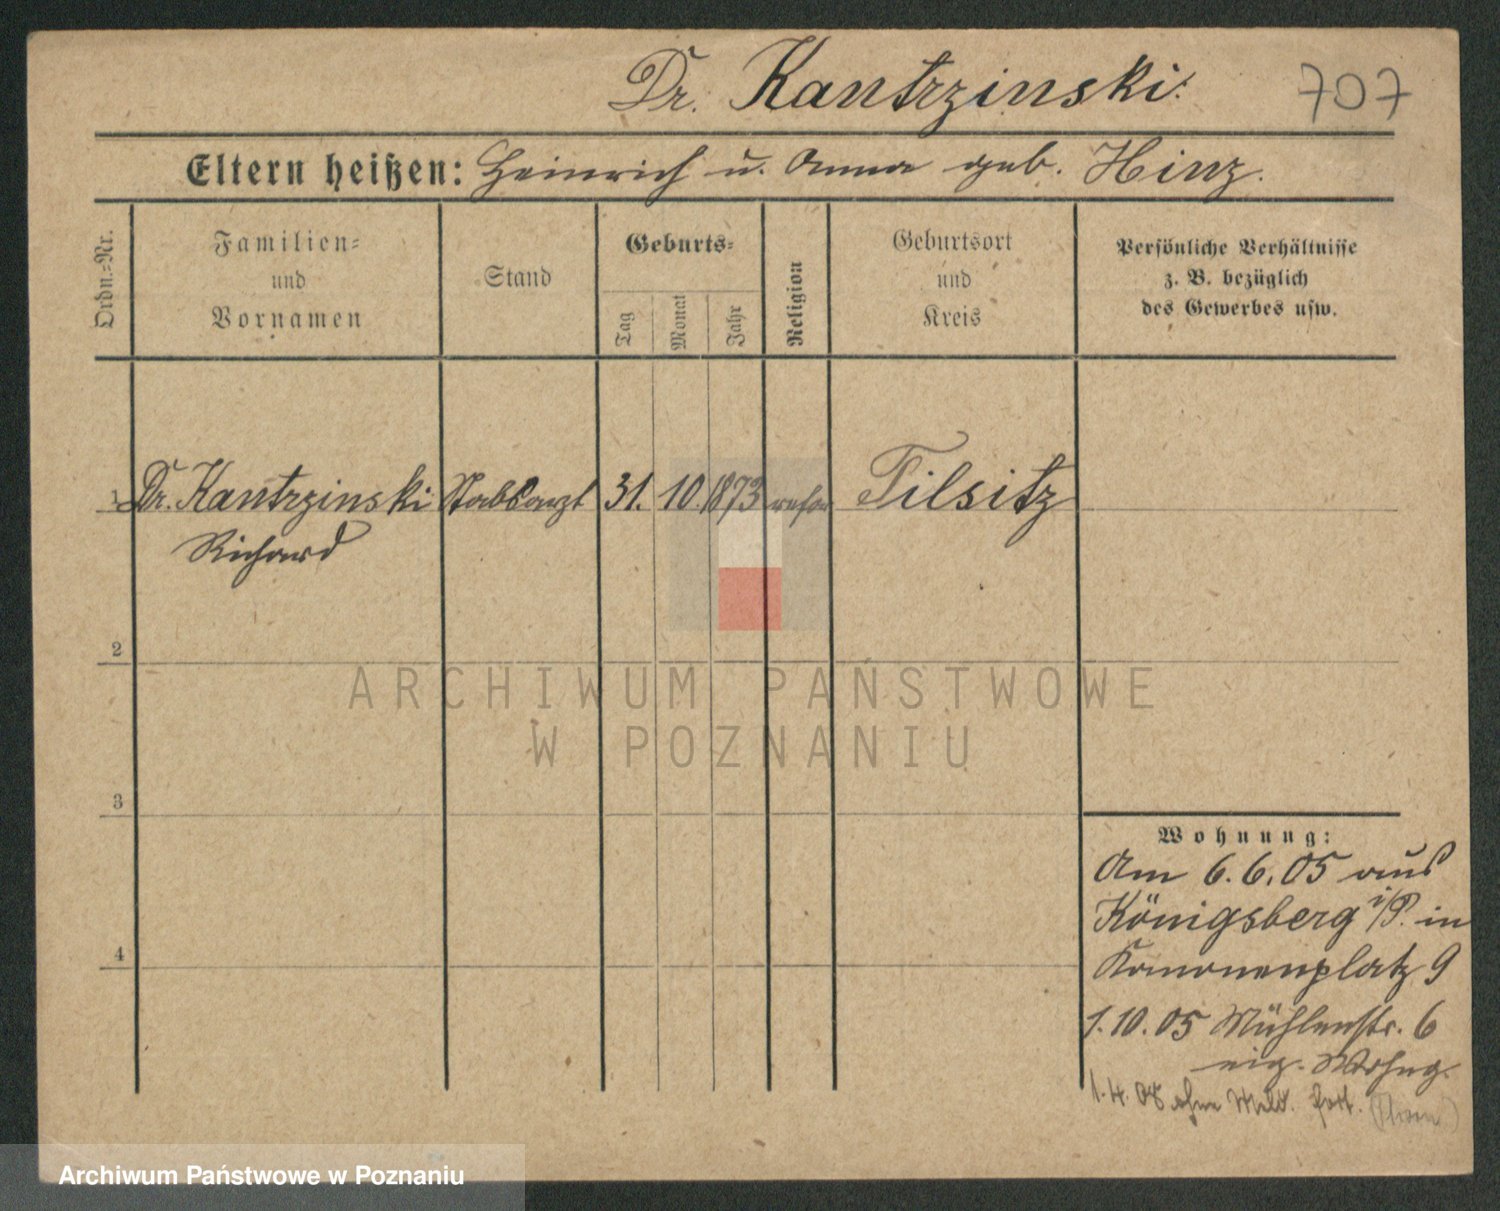 Dr. Kantrzinski.
707
Eltern heißen: Heinrich u. Anna geb. Hinz.
Ordn.-Nr.
Familien-
und
Vornamen
Stand
Geburts-
Tag
Monat
Jahr
Religion
Geburtsort
und
Kreis
Persönliche Verhältnisse
z. B. bezüglich
des Gewerbes usw.
1 Dr. Kantrzinski Stabsarzt 31. 10. 1873 refor Tilsitz
Richard
2
3
4
ARCHIWUM PAŃSTWOWE
W POZNANIU
Wohnung:
Am 6.6.05 aus
Königsberg i/P. in
Kanonenplatz 9
1.10.05 Mühlenstr. 6
eig. Wohng.
1.4.08 ohne Meld. fort.
Archiwum Państwowe w Poznaniu